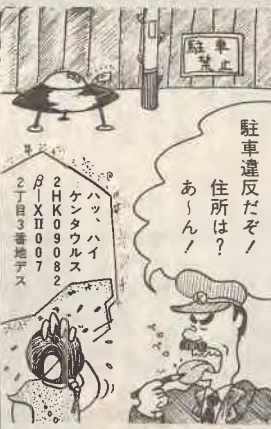 駐車
禁止
駐車違反だぞ！
住所は？
あ〜ん！
ハッ、ハイ
ケンタウルス
2HK09082
β−XⅡ0007
2丁目3番地デス